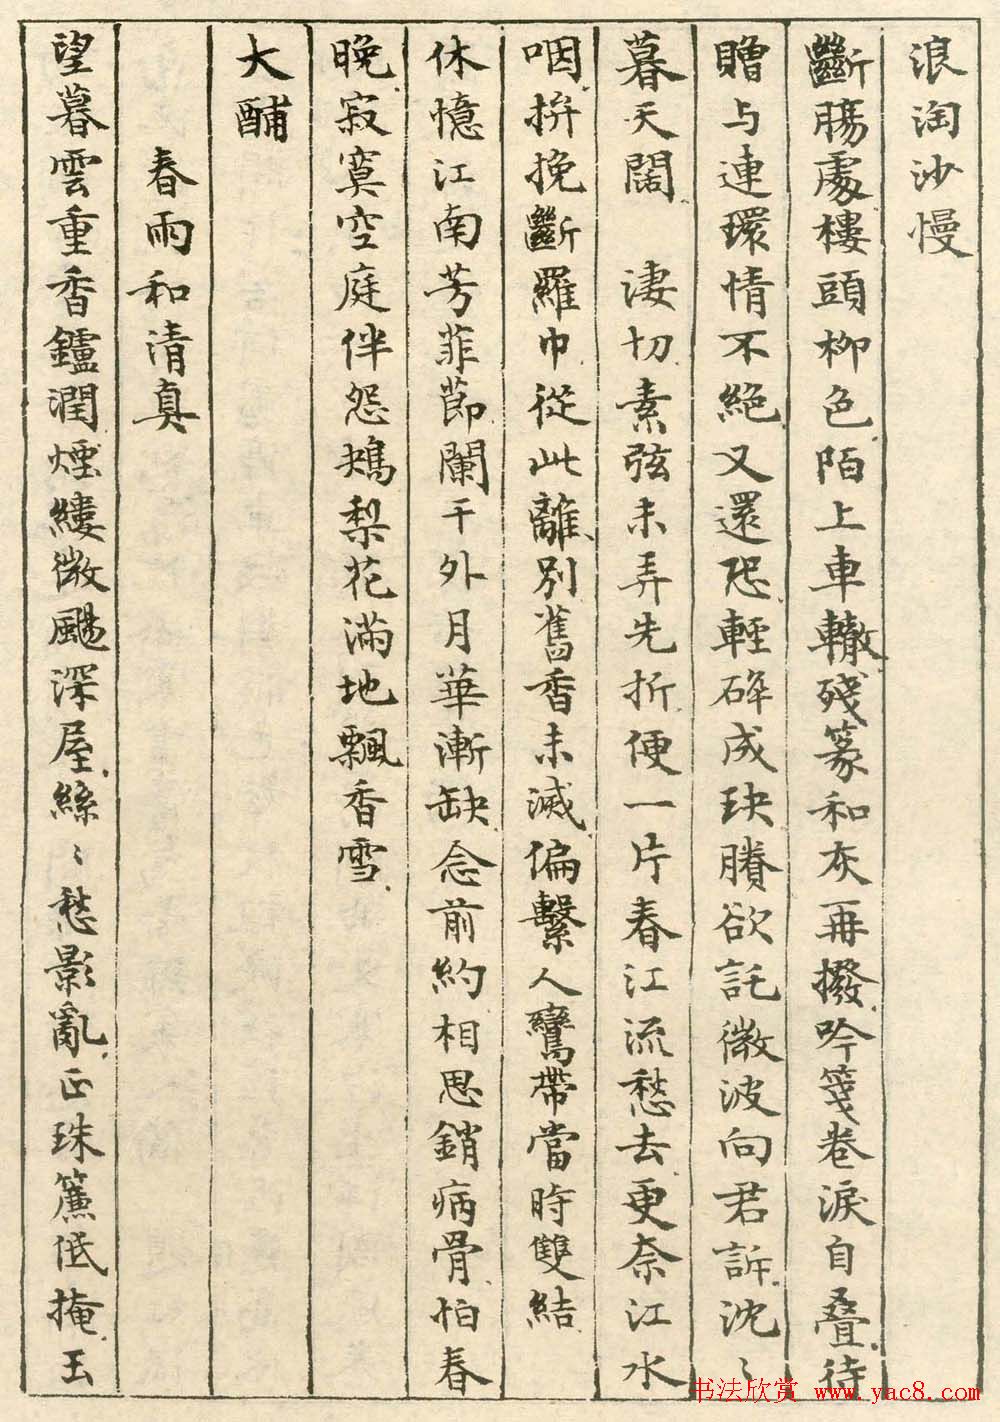 浪淘沙慢
斷腸處樓頭柳色陌上車轍殘篆和灰再撥吟箋卷淚自疊待
贈与連環情不絕又還恐輕碎成玦賸欲託微波向君訴沈〻
暮天闊　淒切素弦未弄先折便一片春江流愁去更奈江水
咽拚挽斷羅巾從此離別舊香未滅偏繫人鸞帶當時雙結
休憶江南芳菲節闌干外月華漸缺念前約相思銷病骨怕春
晚寂寞空庭伴怨鴂梨花滿地飄香雪
大酺
春雨和清真
望暮雲重香鑪潤煙縷微颺深屋絲〻愁影亂正珠簾低掩玉
书法欣赏 www.yac8.com